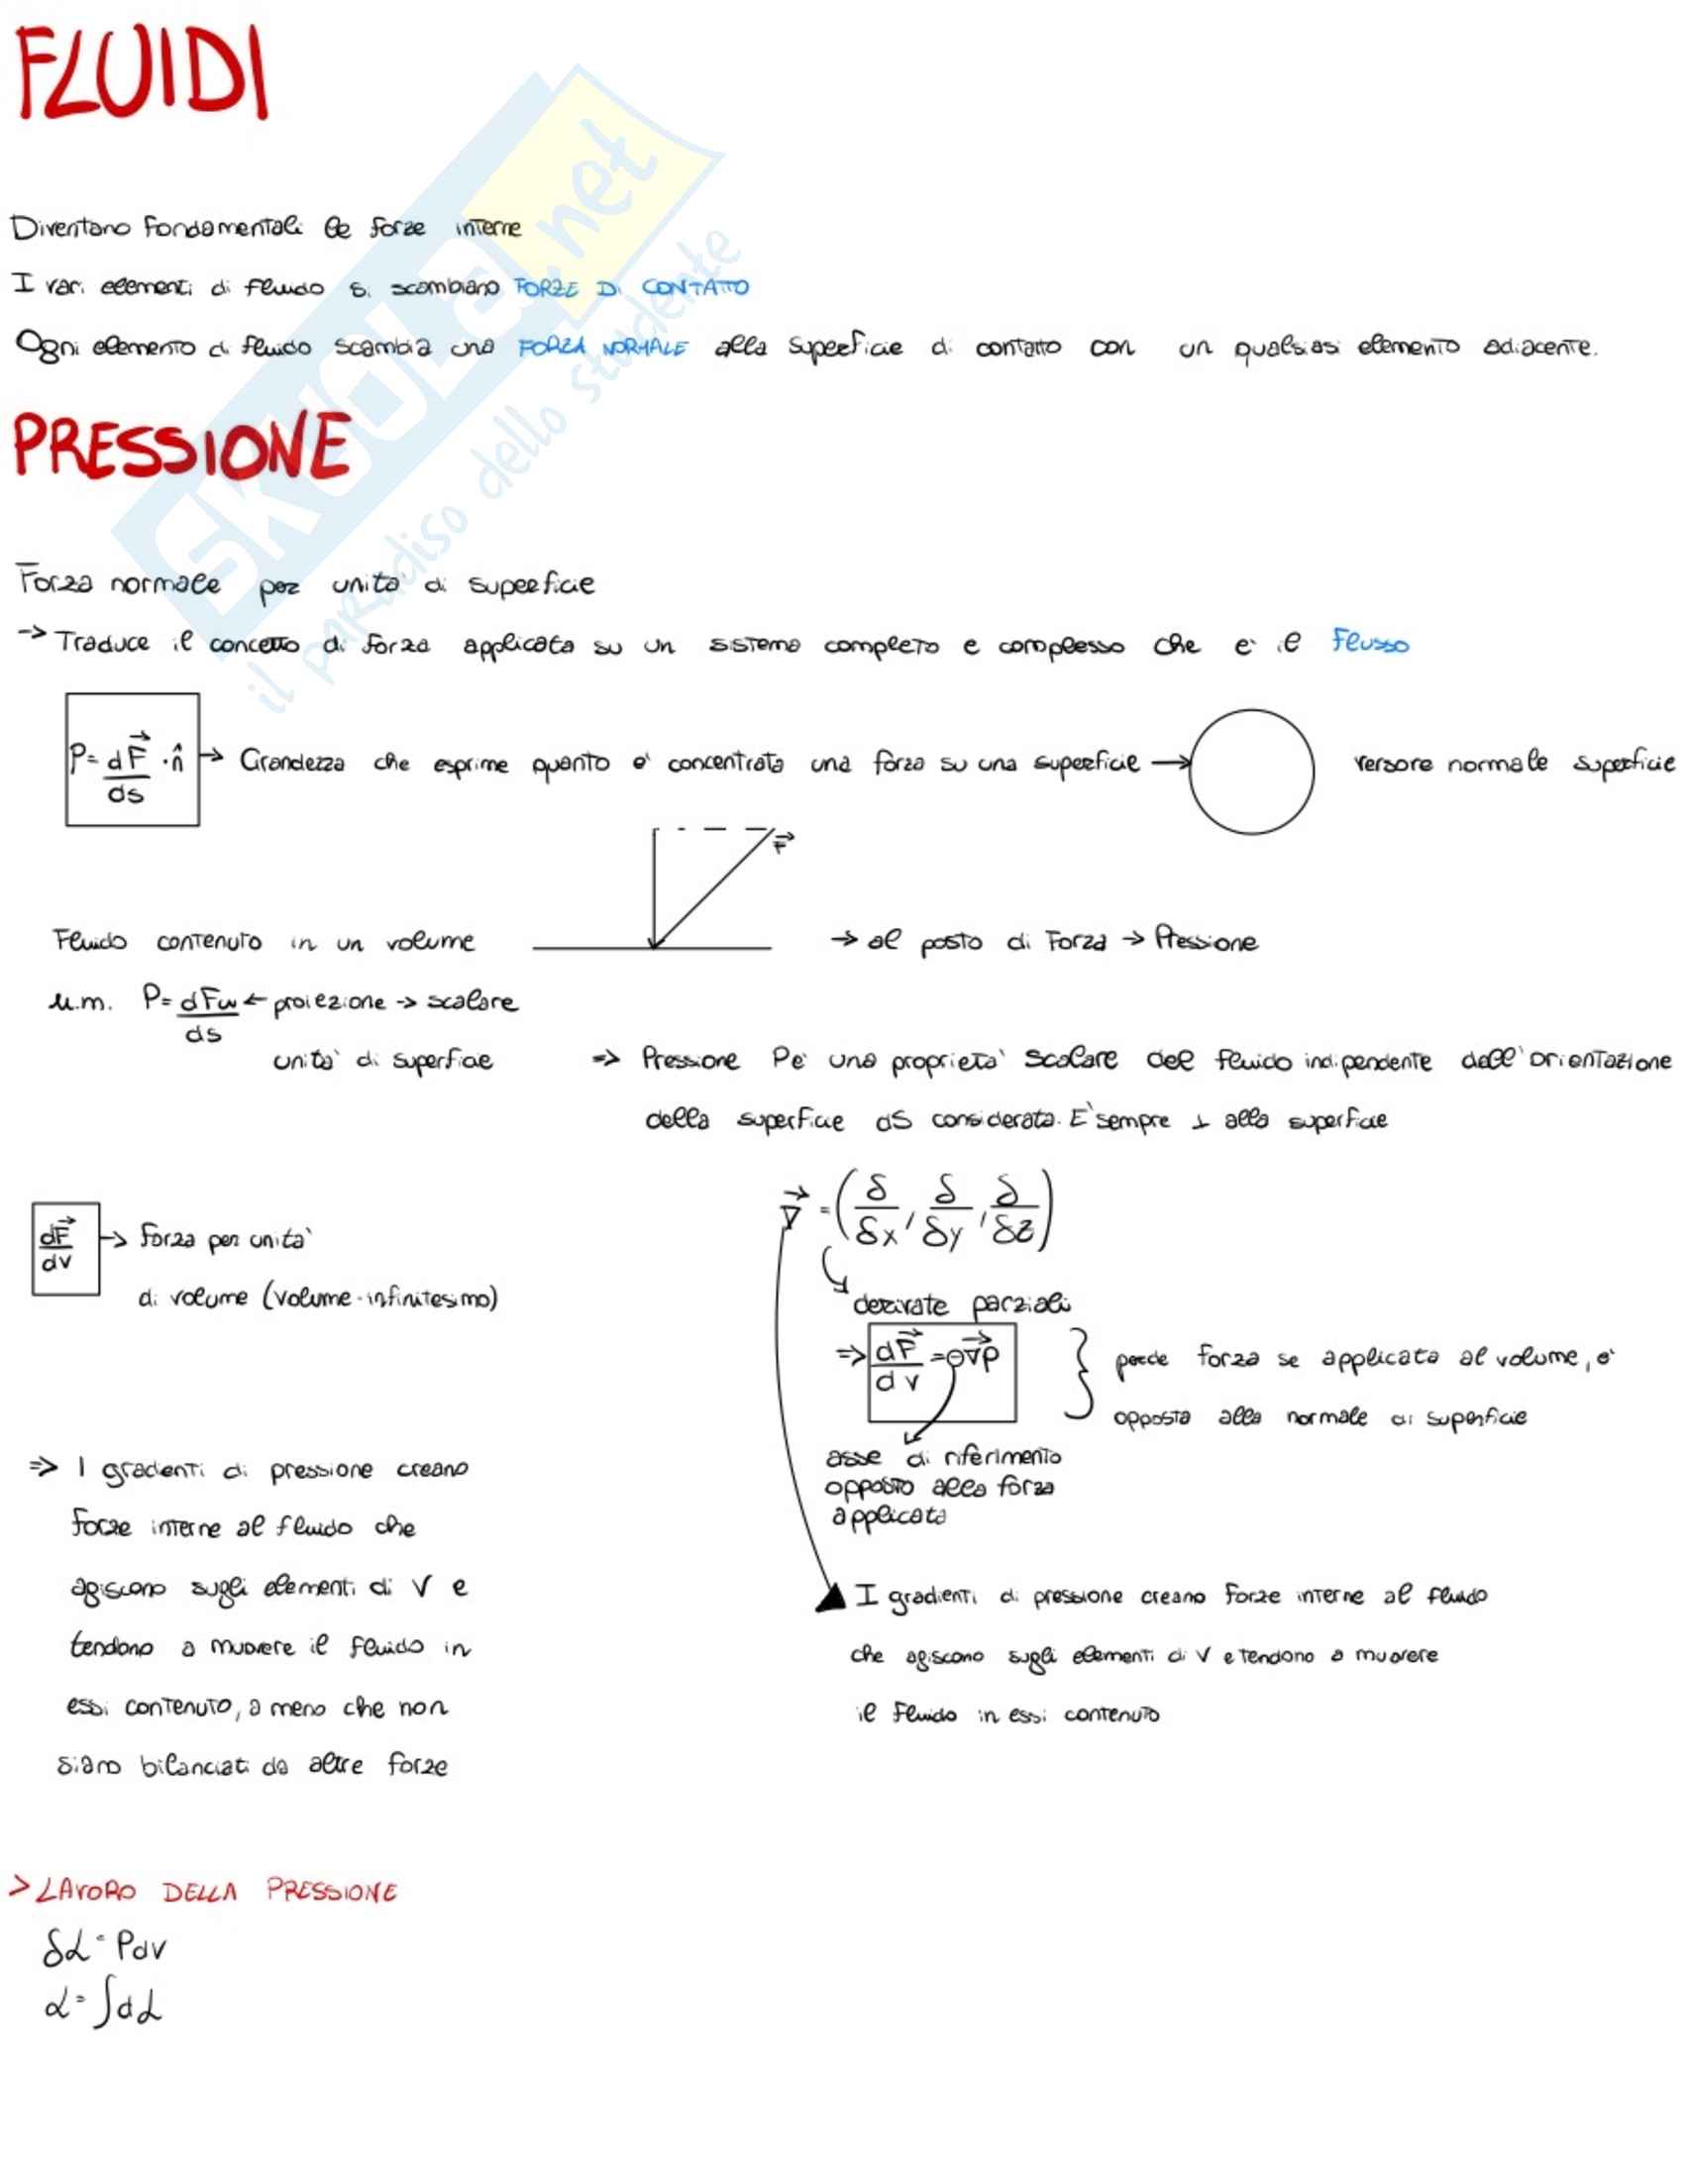 FLUIDI
Diventano fondamentali le forze interne
I vari elementi di fluido si scambiano FORZE DI CONTATTO
Ogni elemento di fluido scambia una FORZA NORMALE alla superficie di contatto con un qualsiasi elemento adiacente.
PRESSIONE
Forza normale per unità di superficie
-> Traduce il concetto di forza applicata su un sistema completo e complesso che è il flusso
P = dF⃗/ds · n̂ → Grandezza che esprime quanto è concentrata una forza su una superficie → versore normale superficie
F⃗
Fluido contenuto in un volume → al posto di Forza → Pressione
u.m. P = dFw/ds ← proiezione -> scalare
unità di superficie
=> Pressione P è una proprietà scalare del fluido indipendente dall'orientazione
della superficie dS considerata. E' sempre ⊥ alla superficie
∇⃗ = (δ/δx, δ/δy, δ/δz)
dF⃗/dv → Forza per unità
di volume (volume infinitesimo)
derivate parziali
=> dF⃗/dv = ⊖∇⃗p } forza se applicata al volume, è
opposta alla normale di superficie
asse di riferimento
opposto alla forza
applicata
=> I gradienti di pressione creano
forze interne al fluido che
agiscono sugli elementi di V e
tendono a muovere il fluido in
essi contenuto, a meno che non
siano bilanciati da altre forze
I gradienti di pressione creano forze interne al fluido
che agiscono sugli elementi di V e tendono a muovere
il fluido in essi contenuto
> LAVORO DELLA PRESSIONE
δL = Pdv
L = ∫dL
SKUOLA.net
il paradiso dello studente